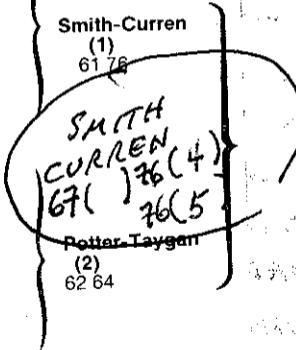 Smith-Curren
(1)
61 76
SMITH
CURREN
67( ) 76(4)
76(5
Potter-Taygan
(2)
62 64